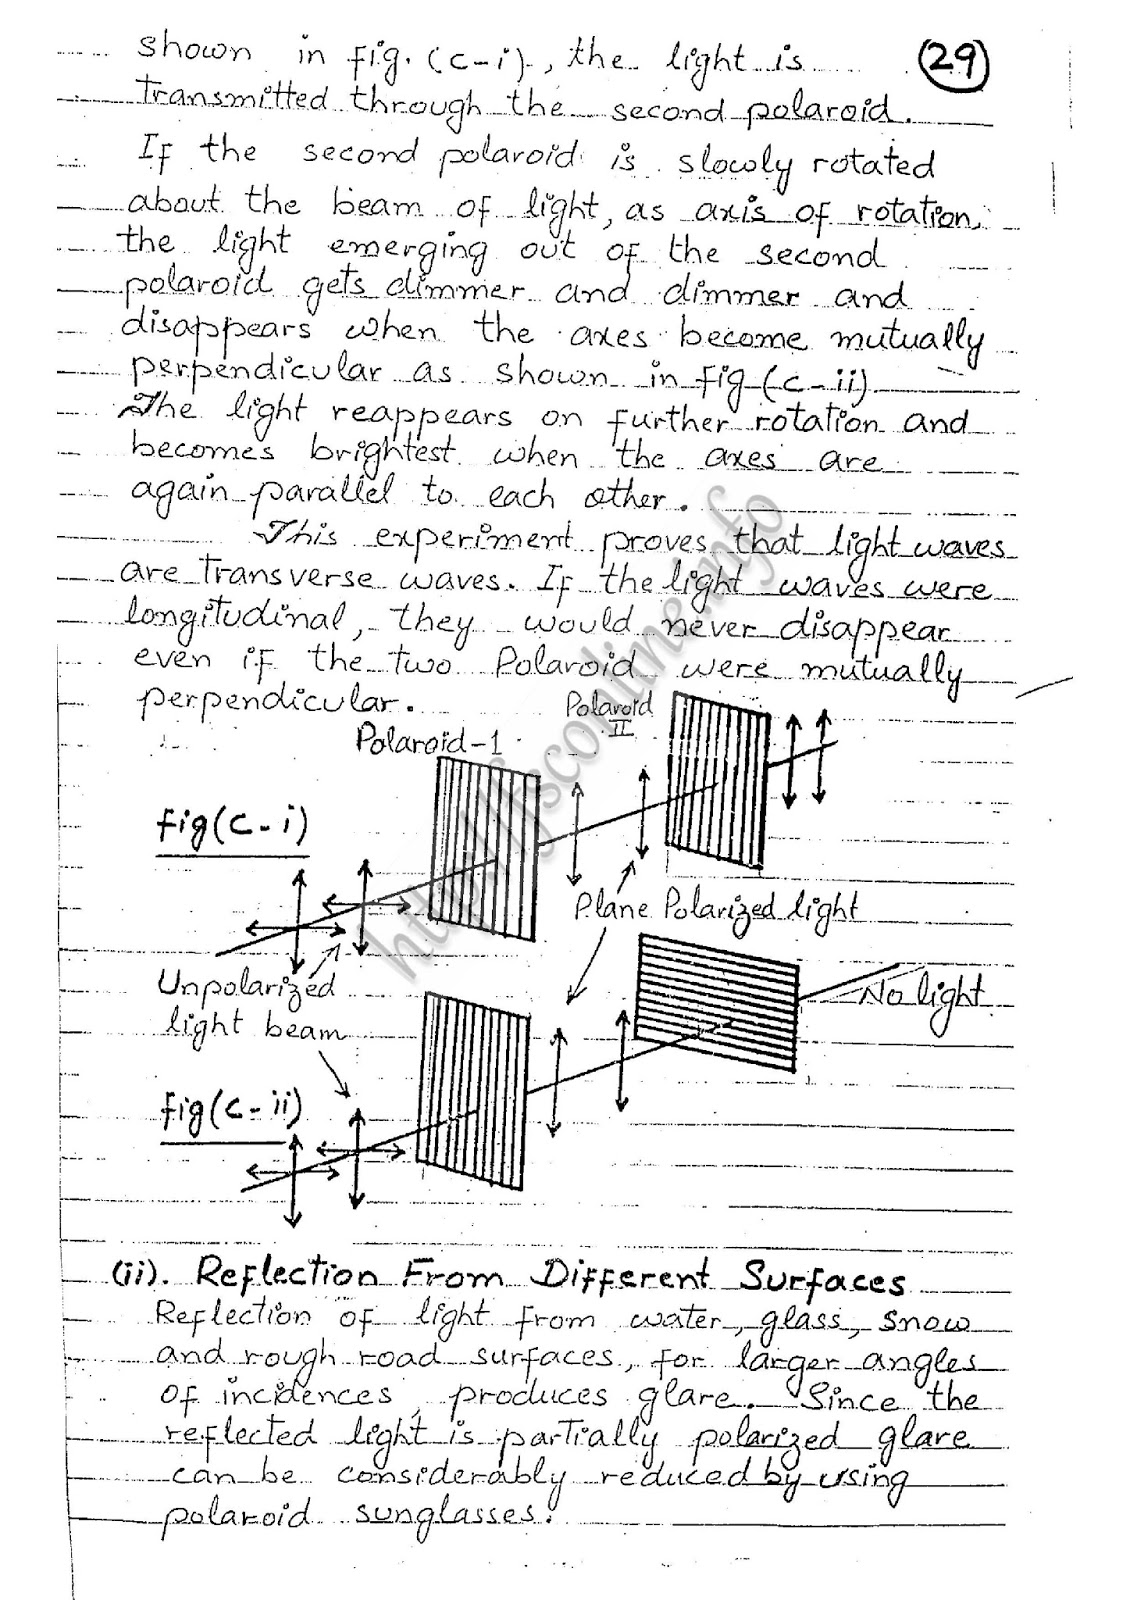 shown in fig. (c-i), the light is
(29)
transmitted through the second polaroid.
If the second polaroid is slowly rotated
about the beam of light, as axis of rotation,
the light emerging out of the second
polaroid gets dimmer and dimmer and
disappears when the axes become mutually
perpendicular as shown in fig (c-ii)
The light reappears on further rotation and
becomes brightest when the axes are
again parallel to each other.
This experiment proves that light waves
are transverse waves. If the light waves were
longitudinal, they would never disappear
even if the two Polaroid were mutually
perpendicular.
Polaroid
II
Polaroid-1
fig(c-i)
Plane Polarized light
Unpolarized
light beam
No light
fig(c-ii)
(ii). Reflection From Different Surfaces
Reflection of light from water, glass, snow
and rough road surfaces, for larger angles
of incidences, produces glare. Since the
reflected light is partially polarized glare
can be considerably reduced by using
polaroid sunglasses.
http://fsconline.info